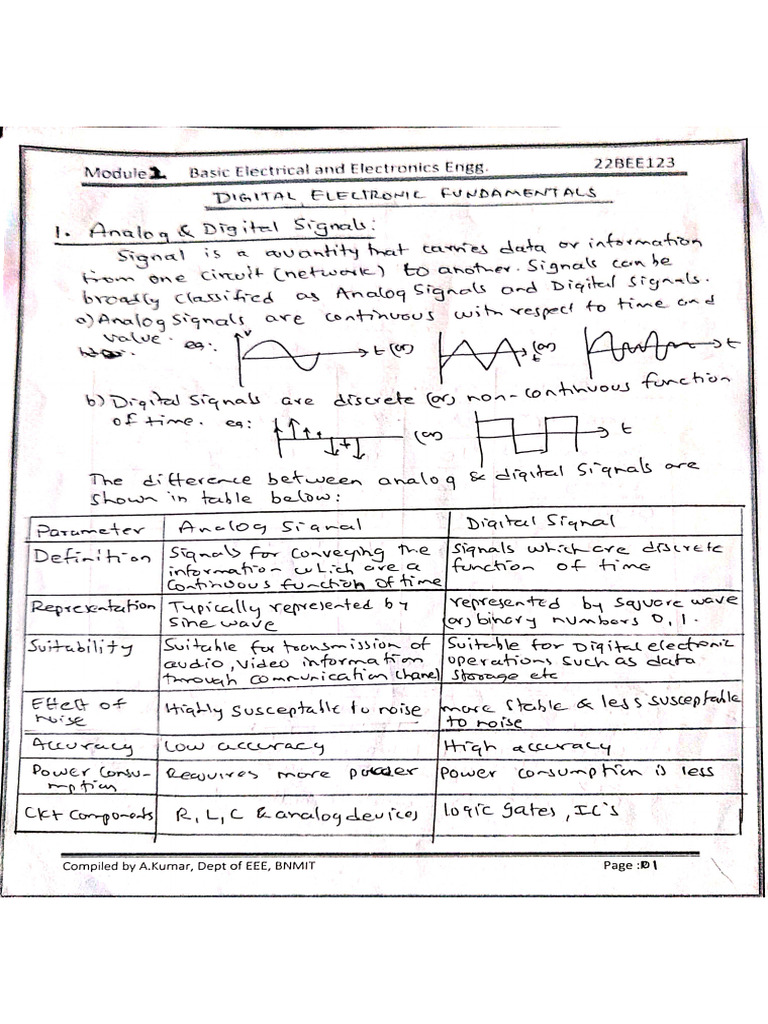 Module 2 Basic Electrical and Electronics Engg. 22BEE123
DIGITAL ELECTRONIC FUNDAMENTALS
1. Analog & Digital Signals:
Signal is a quantity that carries data or information
from one circuit (network) to another. Signals can be
broadly classified as Analog Signals and Digital Signals.
a) Analog Signals are continuous with respect to time and
value. eg: v t (or) t (or) t
b) Digital Signals are discrete (or) non-continuous function
of time. eg: t (or) t
The difference between analog & digital Signals are
shown in table below:
Parameter Analog Signal Digital Signal
Definition Signals for conveying the information which are a continuous function of time Signals which are discrete function of time
Representation Typically represented by sine wave represented by square wave (or) binary numbers 0, 1.
Suitability Suitable for transmission of audio, video information through communication chanel Suitable for Digital electronic operations such as data storage etc
Effect of noise Highly susceptable to noise more stable & less susceptable to noise
Accuracy Low accuracy High accuracy
Power Consu-mption Requires more power Power consumption is less
Ckt Components R, L, C & analog devices logic gates, IC's
Compiled by A.Kumar, Dept of EEE, BNMIT Page :01